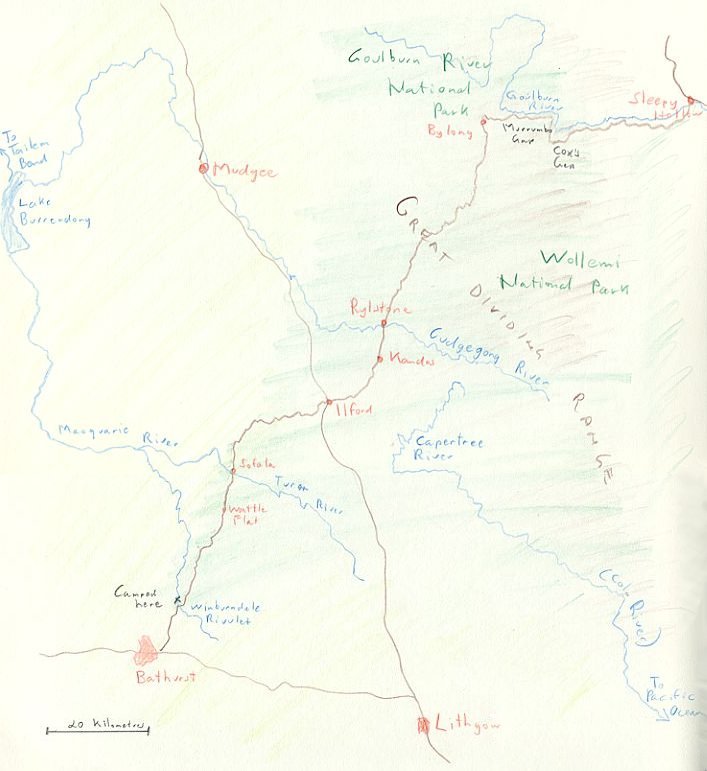 Goulburn River
National
Park
Goulburn
River
Sleepy
Hollow
Bylong
Murrumbo
Gap
Cox's
Gap
To
Tailem
Bend
Mudgee
Lake
Burrendong
GREAT DIVIDING RANGE
Wollemi
National Park
Rylstone
Cudgegong River
Kandos
Ilford
Macquarie River
Capertree
River
Sofala
Turon
River
Wattle
Flat
(Colo
River)
Camped
here
x
Winburndale
Rivulet
To
Pacific
Ocean
Bathurst
20 Kilometres
Lithgow